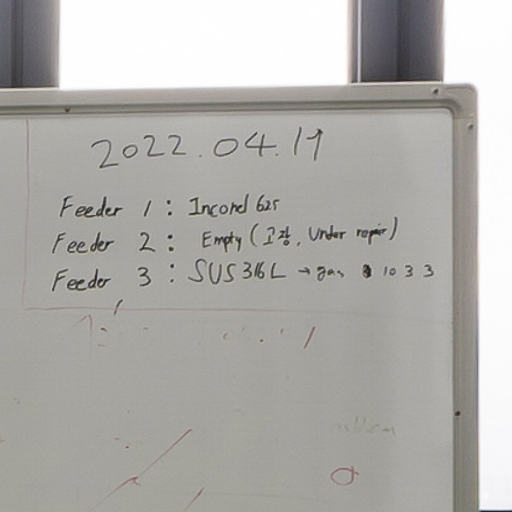 2022.04.19
Feeder 1 : Inconel 625
Feeder 2 : Empty (고장, Under repair)
Feeder 3 : SUS316L → gas 10 3 3